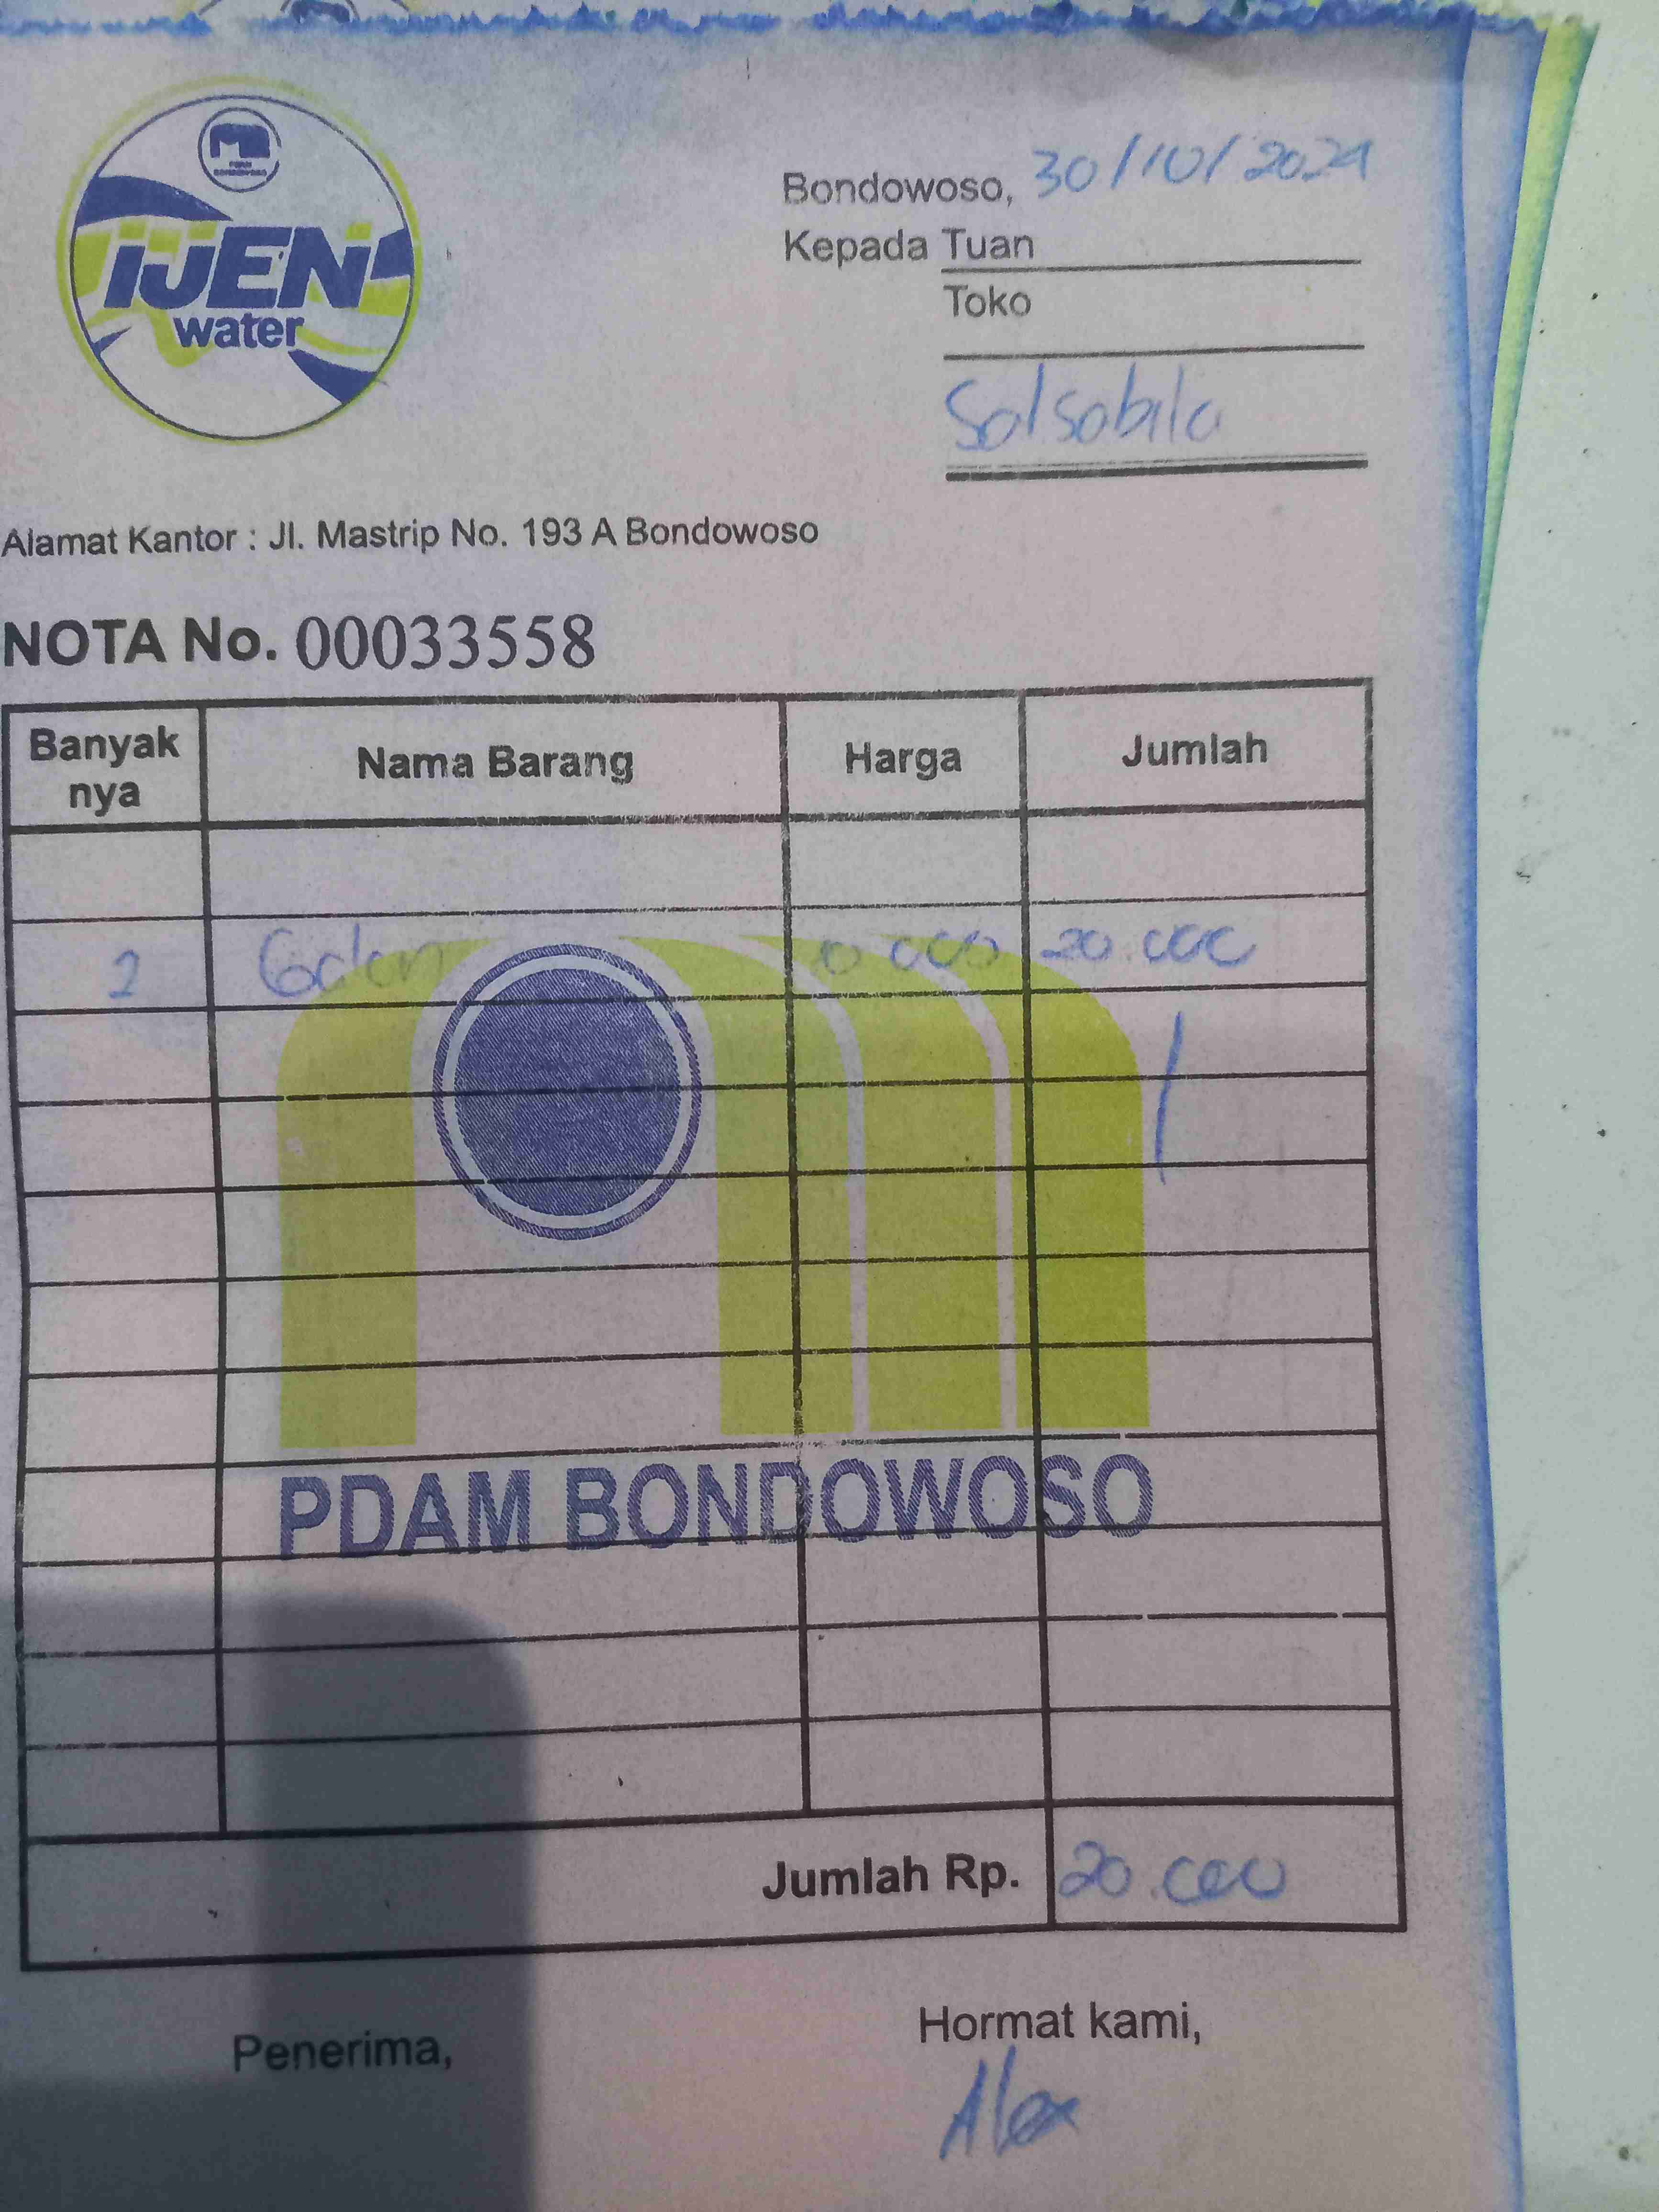 IJEN
water
Bondowoso, 30/10/2024
Kepada Tuan
Toko
Salsabila
Alamat Kantor : Jl. Mastrip No. 193 A Bondowoso
NOTA No. 00033558
Banyak nya Nama Barang Harga Jumlah
2 Galon 10.000 20.000
PDAM BONDOWOSO
Jumlah Rp. 20.000
Penerima, Hormat kami,
Alex